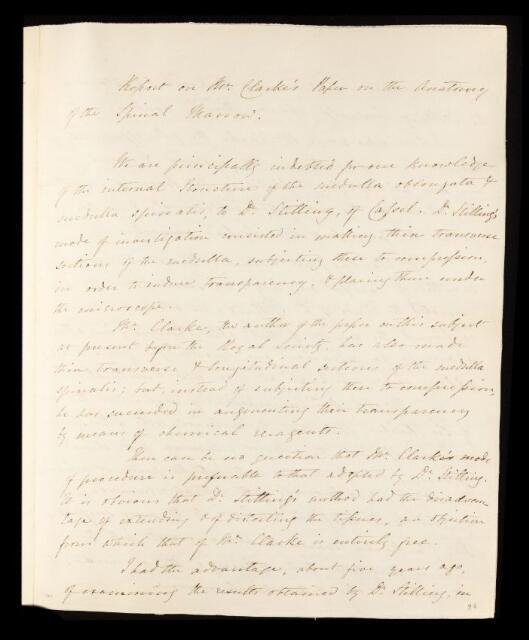 Report on Mr. Clarke's Paper on the Anatomy
of the Spinal Marrow.
We are principally indebted for our knowledge
of the internal structure of the medulla oblongata &
medulla spinalis, to Dr. Stilling, of Cassel. Dr. Stilling's
mode of investigation consisted in making thin transverse
sections of the medulla, subjecting these to compression,
in order to induce transparency, & placing them under
the microscope.
Mr. Clarke, the author of the paper on this subject
at present before the Royal Society has also made
thin transverse & longitudinal sections of the medulla
spinalis; but, instead of subjecting these to compression,
he has succeeded in augmenting their transparency
by means of chemical reagents.
There can be no question that Mr. Clarke's mode
of procedure is preferable to that adopted by Dr. Stilling.
It is obvious that Dr. Stilling's method had the disadvan-
tage of extending & of distorting the tissues, an objection
from which that of Mr. Clarke is entirely free.
I had the advantage, about five years ago,
of examining the results obtained by Dr. Stilling, in